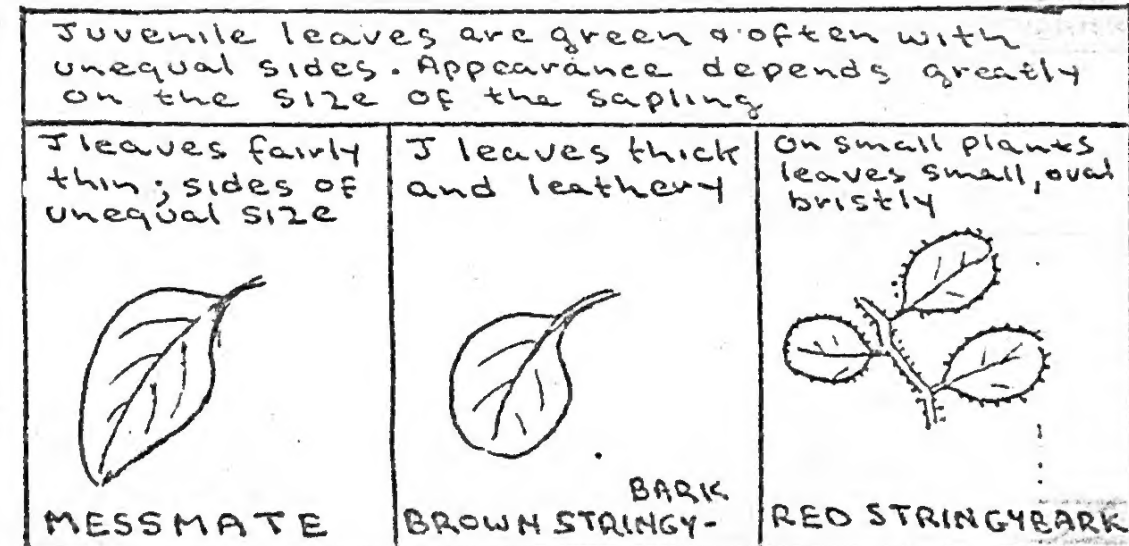 Juvenile leaves are green & often with
unequal sides. Appearance depends greatly
on the size of the sapling
J leaves fairly
thin; sides of
unequal size
MESSMATE
J leaves thick
and leathery
BARK
BROWN STRINGY-
On small plants
leaves small, oval
bristly
RED STRINGYBARK